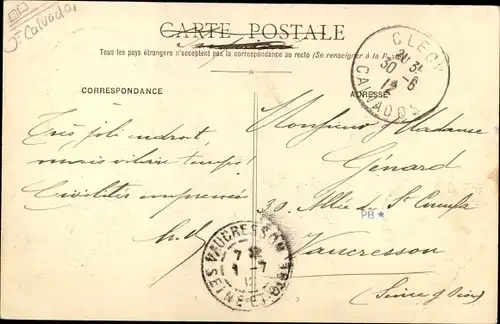 Calvados
CARTE POSTALE
Tous les pays étrangers n'acceptent pas la correspondance au recto (Se renseigner à la Poste)
CLECY
30 -6
12
CALVADOS
CORRESPONDANCE
ADRESSE
Très joli endroit
mais vilain temps!
Civilités empressées
Monsieur & Madame
Génard
30, Allée de St Cucufa
Vaucresson
(Seine & Oise)
PB*
VAUCRESSON
7
1 -7
12
SEINE-ET-OISE